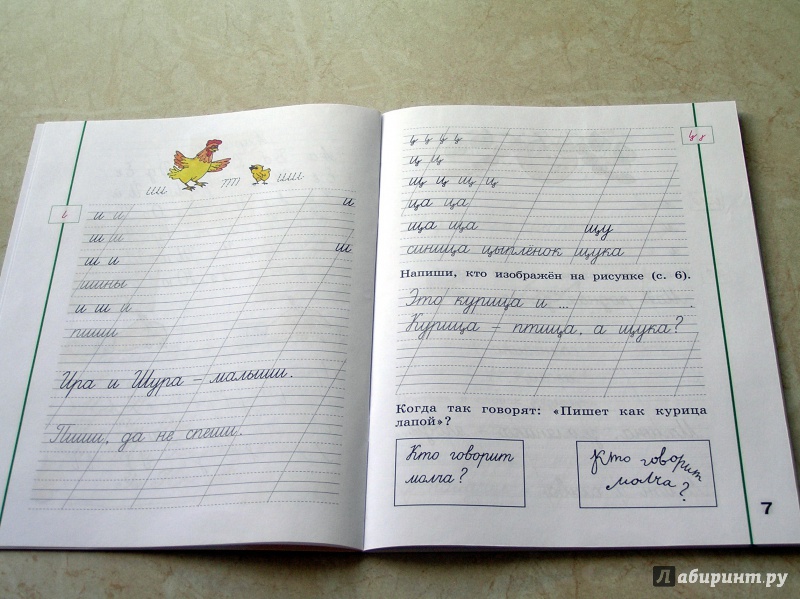 ши ти ши
и
и и и
ш ш ш
ш и
шины
и ш и
пиши
Ира и Шура – малыши.
Пиши, да не спеши.
ц ц
ц ц
щ ц щ ц
ца ца
ща ща щу
синица цыплёнок щука
Напиши, кто изображён на рисунке (с. 6).
Это курица и ... .
Курица – птица, а щука?
Когда так говорят: «Пишет как курица
лапой»?
Кто говорит
молча?
Кто говорит
молча?
7
Лабиринт.ру